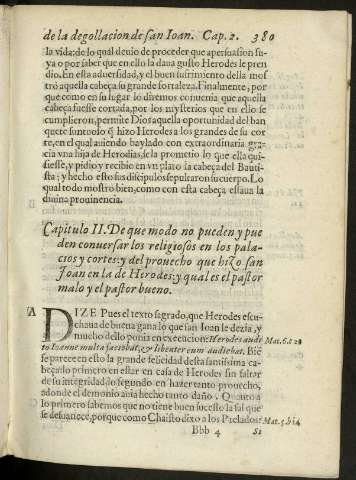 de la degollacion de san Ioan. Cap. 2. 380
la vida: de lo qual deuio de proceder que a persuasion su-
ya o por saber que en ello la daua gusto Herodes le pren
dio. En esta aduersidad, y el buen sufrimiento della mos
trò aquella cabeça su grande fortaleza. Finalmente, por
que como en su lugar lo diremos conuenia que aquella
cabeça fuesse cortada, por los mysterios que en ello se
cumplieron, permite Dios aquella oportunidad del ban
quete suntuoso q̃ hizo Herodes a los grandes de su cor
te, en el qual auiendo baylado con extraordinaria gra-
cia vna hija de Herodias, se la prometio lo que ella qui-
siesse, y pidio y recibio en vn plato la cabeça del Bauti-
sta; y hecho esto sus discipulos sepultaron su cuerpo. Lo
qual todo mostro bien, como con esta cabeça estaua la
diuina prouidencia.
Capitulo II. De que modo no pueden y pue
den conuersar los religiosos en los pala-
cios y cortes: y del prouecho que hizo san
Ioan en la de Herodes: y qual es el pastor
malo y el pastor bueno.
A DIZE Pues el texto sagrado, que Herodes escu-
chaua de buena gana lo que san Ioan le dezia, y
mucho dello ponia en execucion: Herodes audi Mat. 6. c 20
to Ioanne multa faciebat, & libenter eum audiebat. Biẽ
se parece en esto la grande felicidad desta santissima ca-
beça: lo primero en estar en casa de Herodes sin faltar
de su integridad; lo segundo en hazer tanto prouecho,
adonde el demonio auia hecho tanto daño. Quanto a
lo primero sabemos que no tiene buen sucesso la sal que
se desuanece, porque como Christo dixo a los Prelados: Mat. 5. b 14
Bbb 4 Si